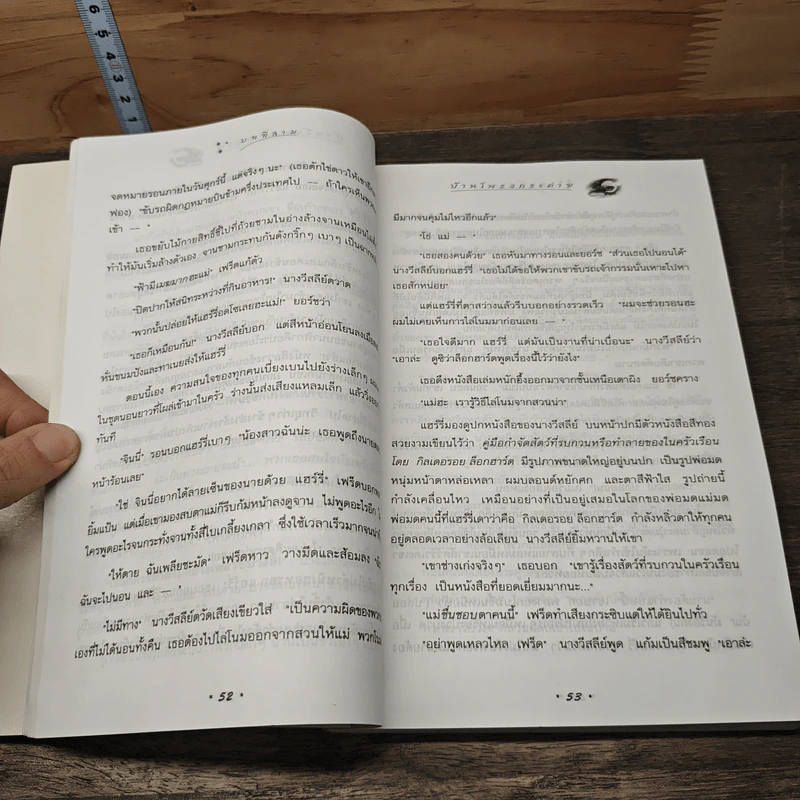 6 5 4 3 2 1
บทที่สาม
จดหมายรอนภายในวันศุกร์นี้ แต่จริงๆ นะ" (เธอตักไข่ดาวให้เขา
ฟอง) "ขับรถผิดกฎหมายบินข้ามครึ่งประเทศไป — ถ้าใครเห็นพวก
เข้า — "
เธอขยับไม้กายสิทธิ์ชี้ไปที่ถ้วยชามในอ่างล้างจานเหมือน
ทำให้มันเริ่มล้างตัวเอง จานชามกระทบกันดังกริ๊กๆ เบาๆ เป็นฉาก
"ฟ้ามีเมฆมากฮะแม่" เฟร็ดแก้ตัว
"ปิดปากให้สนิทระหว่างที่กินอาหาร!" นางวีสลีย์ตวาด
"พวกนั้นปล่อยให้แฮร์รี่อดโซเลยฮะแม่!" ยอร์ชว่า
"เธอก็เหมือนกัน!" นางวีสลีย์บอก แต่สีหน้าอ่อนโยนลงเมื่อ
หั่นขนมปังและทาเนยส่งให้แฮร์รี่
ตอนนี้เอง ความสนใจของทุกคนเบี่ยงเบนไปยังร่างเล็กๆ
ในชุดนอนยาวที่โผล่เข้ามาในครัว ร่างนั้นส่งเสียงแหลมเล็ก แล้ววิ่ง
ทันที
"จินนี่" รอนบอกแฮร์รี่เบาๆ "น้องสาวฉันน่ะ เธอพูดถึงนาย
หน้าร้อนเลย"
"ใช่ จินนี่อยากได้ลายเซ็นของนายด้วย แฮร์รี่" เฟร็ดบอก
ยิ้มแป้น แต่เมื่อเขามองสบตาแม่ก็รีบก้มหน้าลงดูจาน ไม่พูดอะไรอีก
ใครพูดอะไรจนกระทั่งจานทั้งสี่ใบเกลี้ยงเกลา ซึ่งใช้เวลาเร็วมากจน
"ให้ตาย ฉันเพลียชะมัด" เฟร็ดหาว วางมีดและส้อมลง
ฉันจะไปนอน และ — "
"ไม่มีทาง" นางวีสลีย์ตวัดเสียงเขียวใส่ "เป็นความผิดของ
เองที่ไม่ได้นอนทั้งคืน เธอต้องไปไล่โนมออกจากสวนให้แม่
• 52 •
บ้านโพรงกระต่าย
มีมากจนคุมไม่ไหวอีกแล้ว"
"โธ่ แม่ — "
"เธอสองคนด้วย" เธอหันมาทางรอนและยอร์ช "ส่วนเธอไปนอนได้"
นางวีสลีย์บอกแฮร์รี่ "เธอไม่ได้ขอให้พวกเขาขับรถเจ้ากรรมนั่นเหาะไปหา
เธอสักหน่อย"
แต่แฮร์รี่ที่ตาสว่างแล้วรีบบอกอย่างรวดเร็ว "ผมจะช่วยรอนฮะ
ผมไม่เคยเห็นการไล่โนมมาก่อนเลย — "
"เธอใจดีมาก แฮร์รี่ แต่มันเป็นงานที่น่าเบื่อนะ" นางวีสลีย์ว่า
"เอาล่ะ ดูซิว่าล็อกฮาร์ตพูดเรื่องนี้ไว้ว่ายังไง"
เธอดึงหนังสือเล่มหนักอึ้งออกมาจากชั้นเหนือเตาผิง ยอร์ชคราง
"แม่ฮะ เรารู้วิธีไล่โนมจากสวนน่า"
แฮร์รี่มองดูปกหนังสือของนางวีสลีย์ บนหน้าปกมีตัวหนังสือสีทอง
สวยงามเขียนไว้ว่า คู่มือกำจัดสัตว์ที่รบกวนหรือทำลายของในครัวเรือน
โดย กิลเดอรอย ล็อกฮาร์ต มีรูปภาพขนาดใหญ่อยู่บนปก เป็นรูปพ่อมด
หนุ่มหน้าตาหล่อเหลา ผมบลอนด์หยักศก และตาสีฟ้าใส รูปถ่ายนี้
กำลังเคลื่อนไหว เหมือนอย่างที่เป็นอยู่เสมอในโลกของพ่อมดแม่มด
พ่อมดคนนี้ที่แฮร์รี่เดาว่าคือ กิลเดอรอย ล็อกฮาร์ต กำลังหลิ่วตาให้ทุกคน
อยู่ตลอดเวลาอย่างล้อเลียน นางวีสลีย์ยิ้มหวานให้เขา
"เขาช่างเก่งจริงๆ" เธอบอก "เขารู้เรื่องสัตว์ที่รบกวนในครัวเรือน
ทุกเรื่อง เป็นหนังสือที่ยอดเยี่ยมมากนะ..."
"แม่ชื่นชอบตาคนนี้" เฟร็ดทำเสียงกระซิบแต่ให้ได้ยินไปทั่ว
"อย่าพูดเหลวไหล เฟร็ด" นางวีสลีย์พูด แก้มเป็นสีชมพู "เอาล่ะ
• 53 •